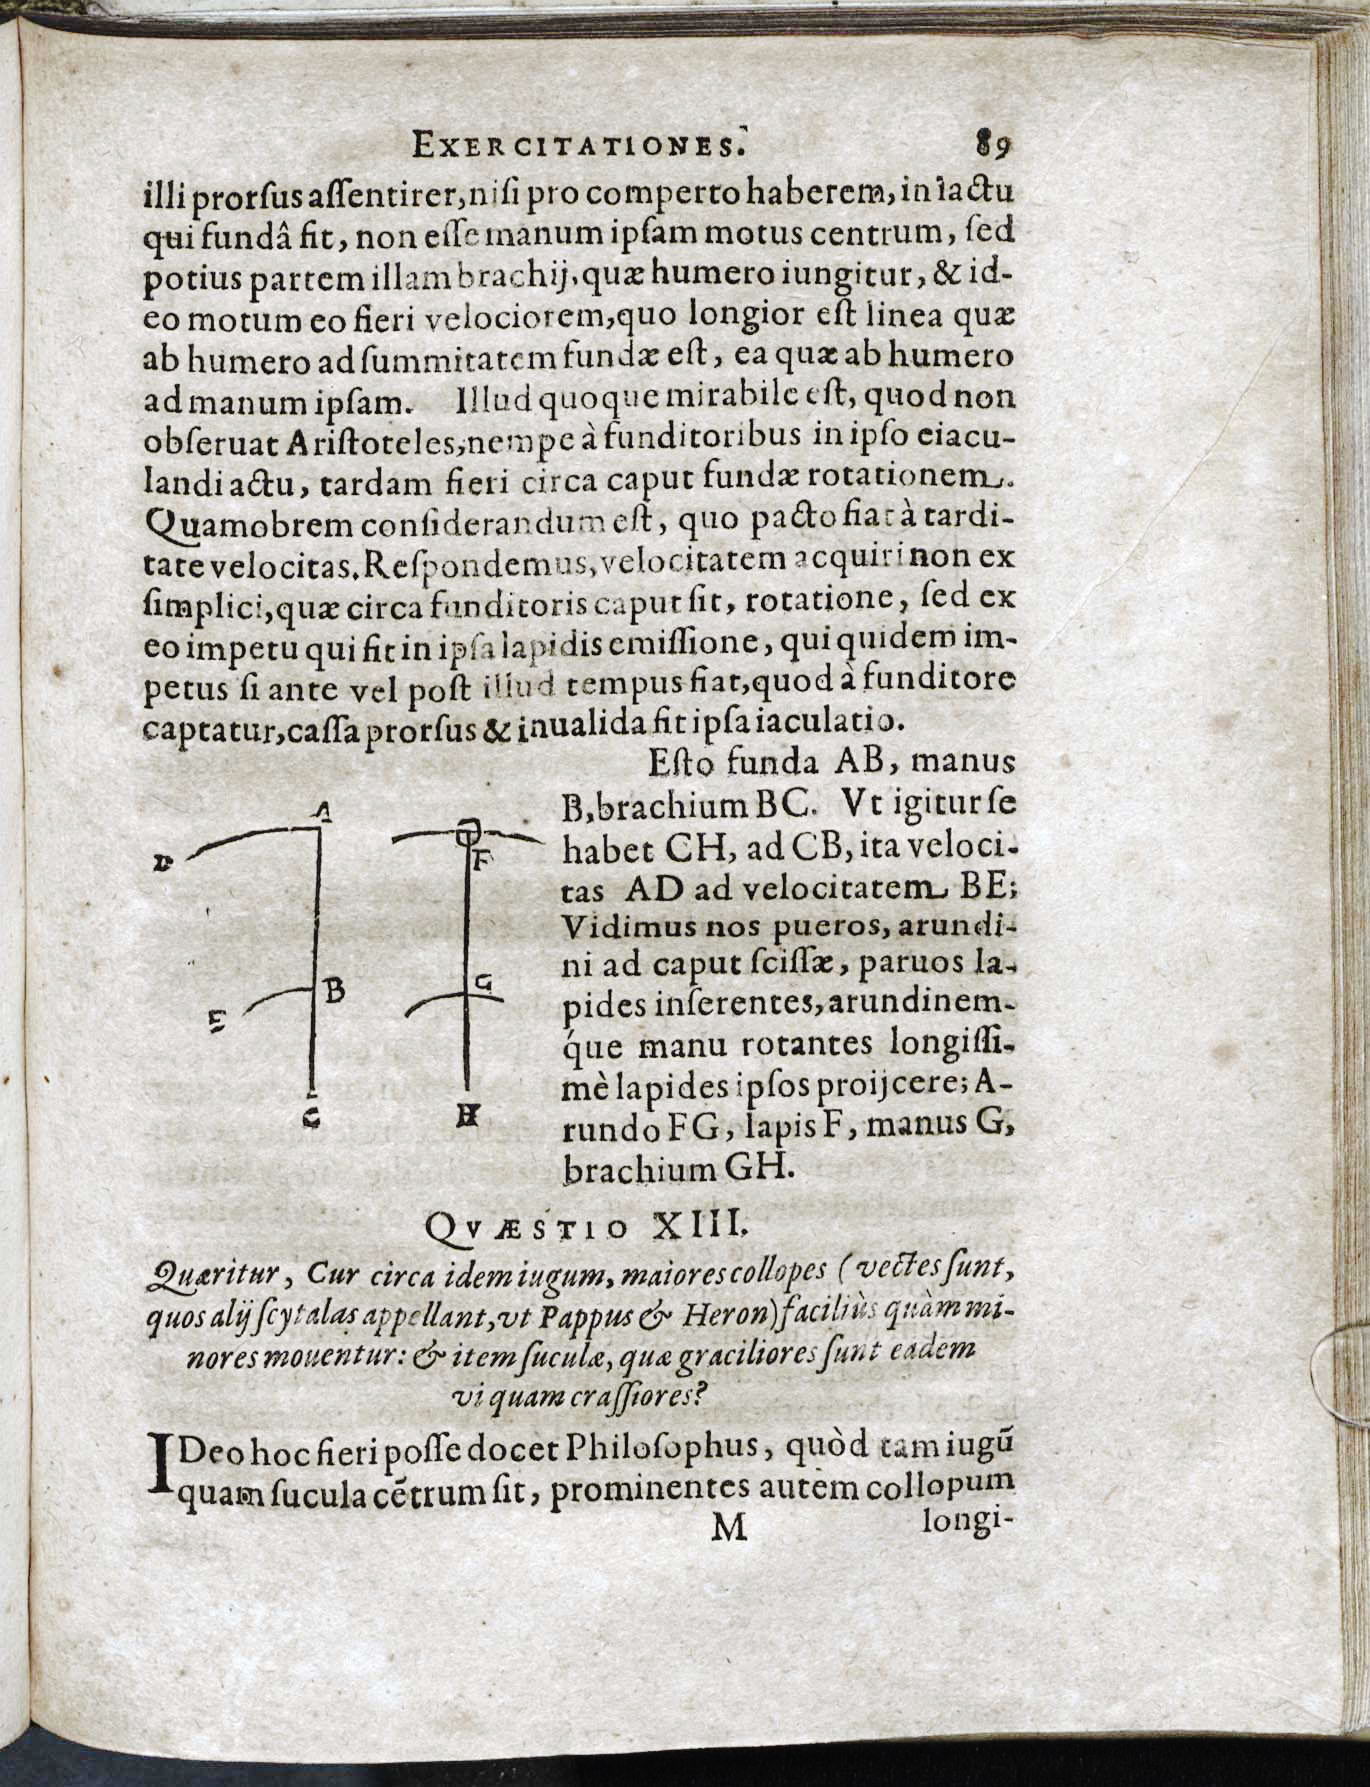 EXERCITATIONES. 89
illi prorſus aſſentirer, niſi pro comperto haberem, in iactu
qui fundâ fit, non eſſe manum ipſam motus centrum, ſed
potius partem illam brachij, quæ humero iungitur, & id-
eo motum eo fieri velociorem, quo longior eſt linea quæ
ab humero ad ſummitatem fundæ eſt, ea quæ ab humero
ad manum ipſam. Illud quoque mirabile eſt, quod non
obſeruat Ariſtoteles, nempe à funditoribus in ipſo eiacu-
landi actu, tardam fieri circa caput fundæ rotationem.
Quamobrem conſiderandum eſt, quo pacto fiat à tardi-
tate velocitas. Reſpondemus, velocitatem acquiri non ex
ſimplici, quæ circa funditoris caput fit, rotatione, ſed ex
eo impetu qui fit in ipſa lapidis emiſſione, qui quidem im-
petus ſi ante vel poſt illud tempus fiat, quod à funditore
captatur, caſſa prorſus & inualida fit ipſa iaculatio.
Eſto funda AB, manus
B, brachium BC. Vt igitur ſe
habet CH, ad CB, ita veloci-
tas AD ad velocitatem BE;
Vidimus nos pueros, arundi-
ni ad caput ſciſſæ, paruos la-
pides inſerentes, arundinem-
q́ue manu rotantes longiſſi-
mè lapides ipſos proijcere; A-
rundo FG, lapis F, manus G,
brachium GH.
A
D
F
B
G
E
C
H
QVÆSTIO XIII.
Quæritur, Cur circa idem iugum, maiores collopes (vectes ſunt,
quos alij ſcytalas appellant, vt Pappus & Heron) faciliùs quàm mi-
nores mouentur: & item ſuculæ, quæ graciliores ſunt eadem
vi quam craſſiores?
IDeo hoc fieri poſſe docet Philoſophus, quòd tam iugũ
quam ſucula cẽtrum ſit, prominentes autem collopum
M longi-